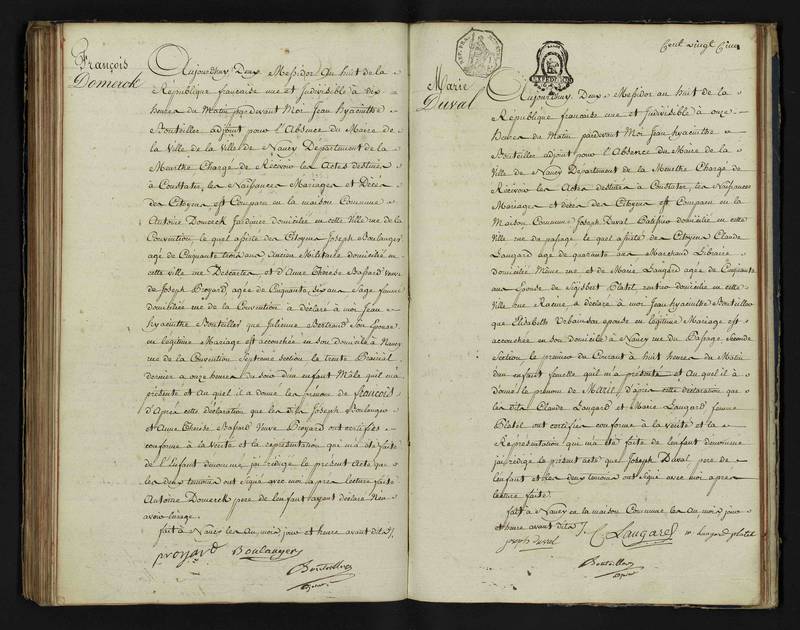 François
Domerck
Aujourdhuy Deux Messidor An huit de la
République française une et Indivisible à dix
heures du Matin pardevant Moi Jean hyacinthe
Bouteiller adjoint pour l'Absence du Maire de
la Ville de la Ville de Nancy Département de la
Meurthe Chargé de Récevoir les Actes destinés
à Constater les Naissances Mariages et Décès
des Citoyens est Comparu en la maison Commune
Antoine Domerck Jardinier domicilié en cette Ville rue de la
Convention, le quel assisté des Citoyens Joseph Boulanger
agé de Cinquante trois ans, ancien Militaire domicilié en
cette ville rue Descartes, et d'Anne Thérèse Bassard Veuve
de Joseph Proyard agée de Cinquante six ans Sage femme
domiciliée rue de la Convention à déclaré à moi Jean
hyacinthe Bouteiller que Julienne Bertrand Son Epouse
en légitime Mariage est accouchée en son domicile à Nancy
rue de la Convention Septième section le trente Prairial
dernier a onze heures du soir d'un enfant Mâle quil m'a
présenté et Au quel il a donné les prénoms de françois
D'Après cette déclaration que les dits Joseph Boulanger
et Anne Thérèse Bassard Veuve Proyard ont certifiés
conforme à la Verité et la représentation qui m'a été faite
de l'Enfant denommé, jai rédigé le présent acte que
les deux temoins ont signé avec moi après lecture faite
Antoine Domerck pere de lenfant ayant déclaré n'en
avoir lusage.
fait à Nancy les An, mois jour et heure avant dits
proyard Boulanger
Bouteiller
Cent vingt Cinq
Marie
Duval
Aujourdhuy Deux Messidor an huit de la
République française une et Indivisible à onze
heures du Matin pardevant Moi Jean hyacinthe
Bouteiller adjoint pour l'Absence du Maire de la
Ville de Nancy Département de la Meurthe Chargé de
Récevoir les Actes destinés à Constater, les Naissances
Mariages et décès des Citoyens est Comparu en la
Maison Commune Joseph Duval domicilié en cette
Ville rue du passage le quel assisté des Citoyens Claude
Laugard agé de quarante ans Marchand Libraire
domicilié Même rue et de Marie Laugard agée de Cinquante
ans Epouse de Platel, domicilié en cette
Ville rue Racine a déclaré à moi Jean hyacinthe Bouteiller
que Elisabeth épouse en légitime Mariage est
accouchée en son domicile à Nancy rue du Passage Seconde
Section le premier du Courant à huit heures du Matin
d'un enfant femelle qu'il m'a présenté et Au quel il à
donné le prénom de Marie, d'après cette déclaration que
les dits Claude Laugard et Marie Laugard femme
Platel ont certifié conforme à la verité et la
Représentation qui m'a été faite de lenfant denommé
jai rédigé le présent acte que Joseph Duval pere de
lenfant et les deux temoins ont signé avec moi apres
lecture faite.
fait à Nancy en la maison Commune les An, mois jour
et heure avant dits
joseph duval C Laugard m laugard platel
Bouteiller